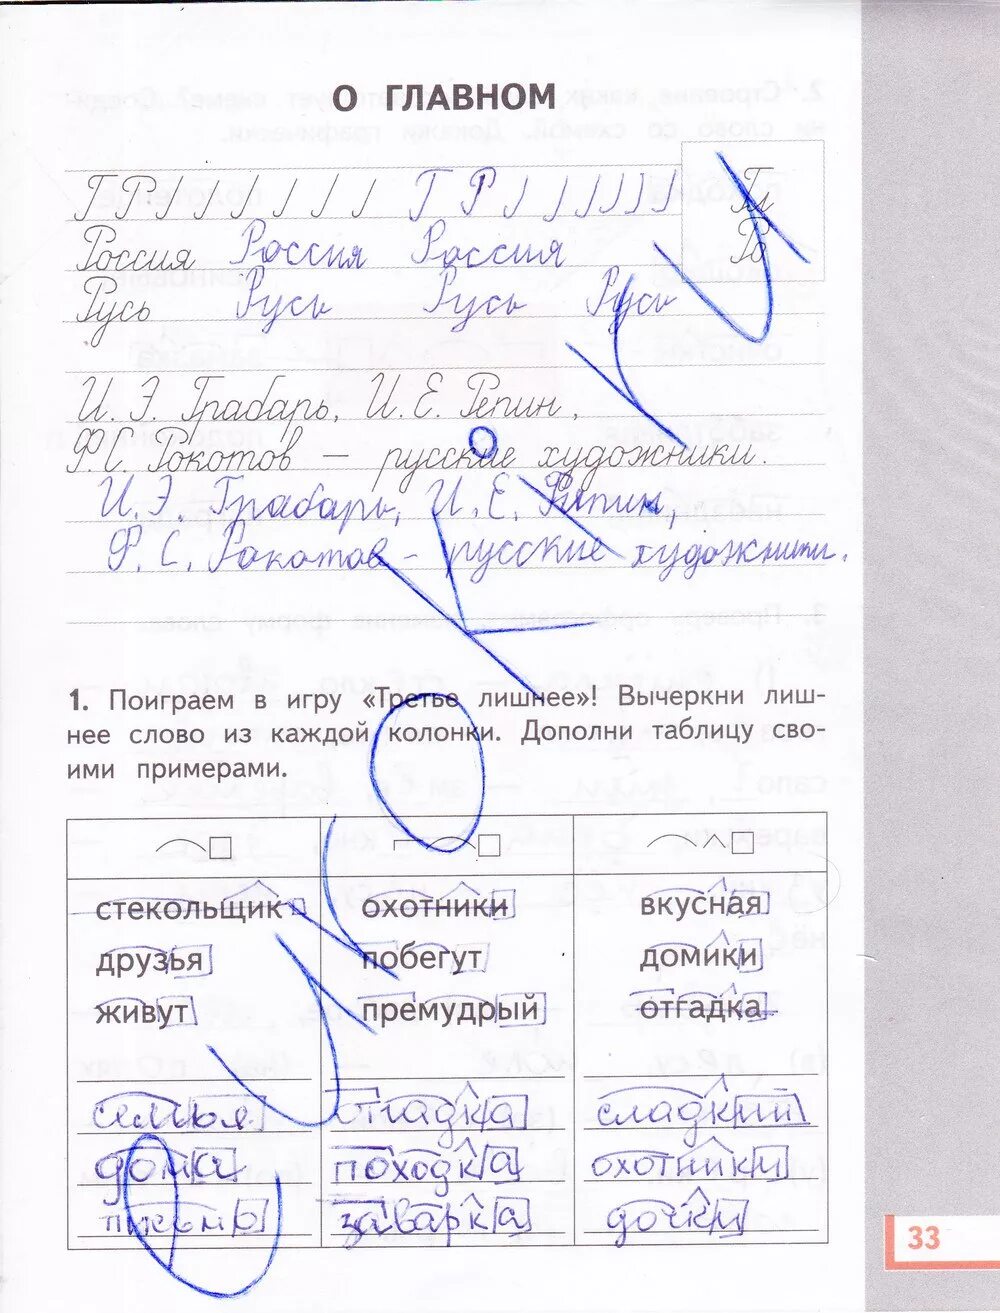 О ГЛАВНОМ
ГР Г Р
Россия Россия Россия
Русь Русь Русь Русь
И. Э. Грабарь, И. Е. Репин,
Ф. С. Рокотов — русские художники.
И. Э. Грабарь, И. Е. Репин,
Ф. С. Рокотов – русские художники.
1. Поиграем в игру «Третье лишнее»! Вычеркни лиш-
нее слово из каждой колонки. Дополни таблицу сво-
ими примерами.
стекольщик охотники вкусная
друзья побегут домики
живут премудрый отгадка
семья отгадка сладкий
дома походка охотники
письмо заварка дочки
33